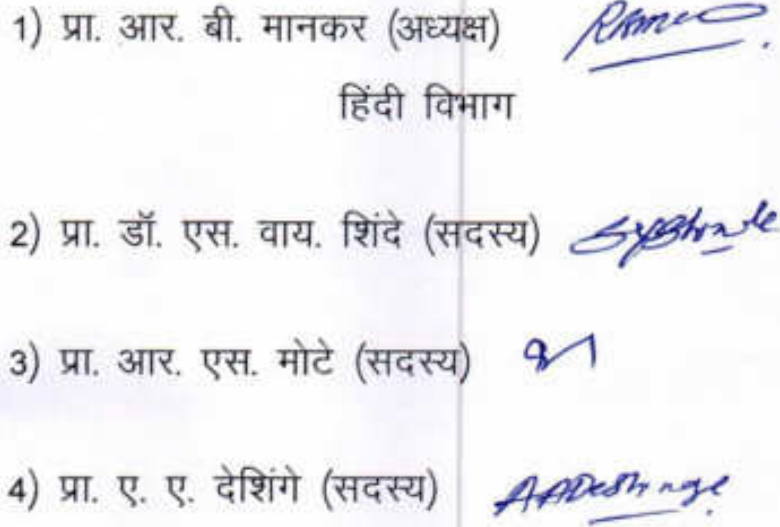 1) प्रा. आर. बी. मानकर (अध्यक्ष)
हिंदी विभाग
2) प्रा. डॉ. एस. वाय. शिंदे (सदस्य) SyShinde
3) प्रा. आर. एस. मोटे (सदस्य)
4) प्रा. ए. ए. देशिंगे (सदस्य) AADeshinge